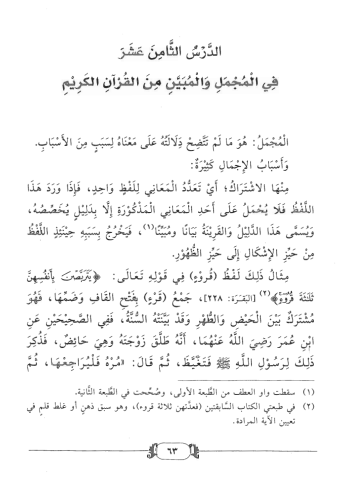 الدَّرْسُ الثَّامِنَ عَشَرَ
فِي الْمُجْمَلِ وَالْمُبَيَّنِ مِنَ القُرْآنِ الكَرِيْمِ
الْمُجْمَلُ: هُوَ مَا لَمْ تَتَّضِحْ دِلَالَتُهُ عَلَى مَعْنَاهُ لِسَبَبٍ مِنَ الأَسْبَابِ.
وَأَسْبَابُ الإِجْمَالِ كَثِيْرَةٌ:
مِنْهَا الاشْتِرَاكُ؛ أَيْ تَعَدُّدُ الْمَعَانِي لِلَفْظٍ وَاحِدٍ، فَإِذَا وَرَدَ هَذَا
اللَّفْظُ فَلَا يُحْمَلُ عَلَى أَحَدِ الْمَعَانِي الْمَذْكُوْرَةِ إِلَّا بِدَلِيْلٍ يُخَصِّصُهُ،
وَيُسَمَّى هَذَا الدَّلِيْلُ وَالقَرِيْنَةُ بَيَانًا وَمُبَيِّنًا(١)، فَيَخْرُجُ بِسَبَبِهِ حِيْنَئِذٍ اللَّفْظُ
مِنْ حَيِّزِ الإِشْكَالِ إِلَى حَيِّزِ الظُّهُوْرِ.
مِثَالُ ذَلِكَ لَفْظُ (قُرُوءٍ) فِي قَوْلِهِ تَعَالَى: ﴿يَتَرَبَّصْنَ بِأَنفُسِهِنَّ
ثَلَثَةَ قُرُوءٍ﴾(٢) [البَقَرَة: ٢٢٨]، جَمْعُ (قَرْءٍ) بِفَتْحِ القَافِ وَضَمِّهَا، فَهُوَ
مُشْتَرَكٌ بَيْنَ الْحَيْضِ وَالطُّهْرِ وَقَدْ بَيَّنَتْهُ السُّنَّةُ، فَفِي الصَّحِيْحَيْنِ عَنِ
ابْنِ عُمَرَ رَضِيَ اللَّهُ عَنْهُمَا، أَنَّهُ طَلَّقَ زَوْجَتَهُ وَهِيَ حَائِضٌ، فَذُكِرَ
ذَلِكَ لِرَسُوْلِ اللَّهِ ﷺ فَتَغَيَّظَ، ثُمَّ قَالَ: «مُرْهُ فَلْيُرَاجِعْهَا، ثُمَّ
(١) سقطت واو العطف من الطَّبعة الأولى، وصُحِّحت في الطَّبعة الثَّانية.
(٢) في طبعتي الكتاب السَّابقتين (فعدَّتهن ثلاثة قروء)، وهو سبق ذهنٍ أو غلط قلمٍ في
تعيين الآية المرادة.
٦٣